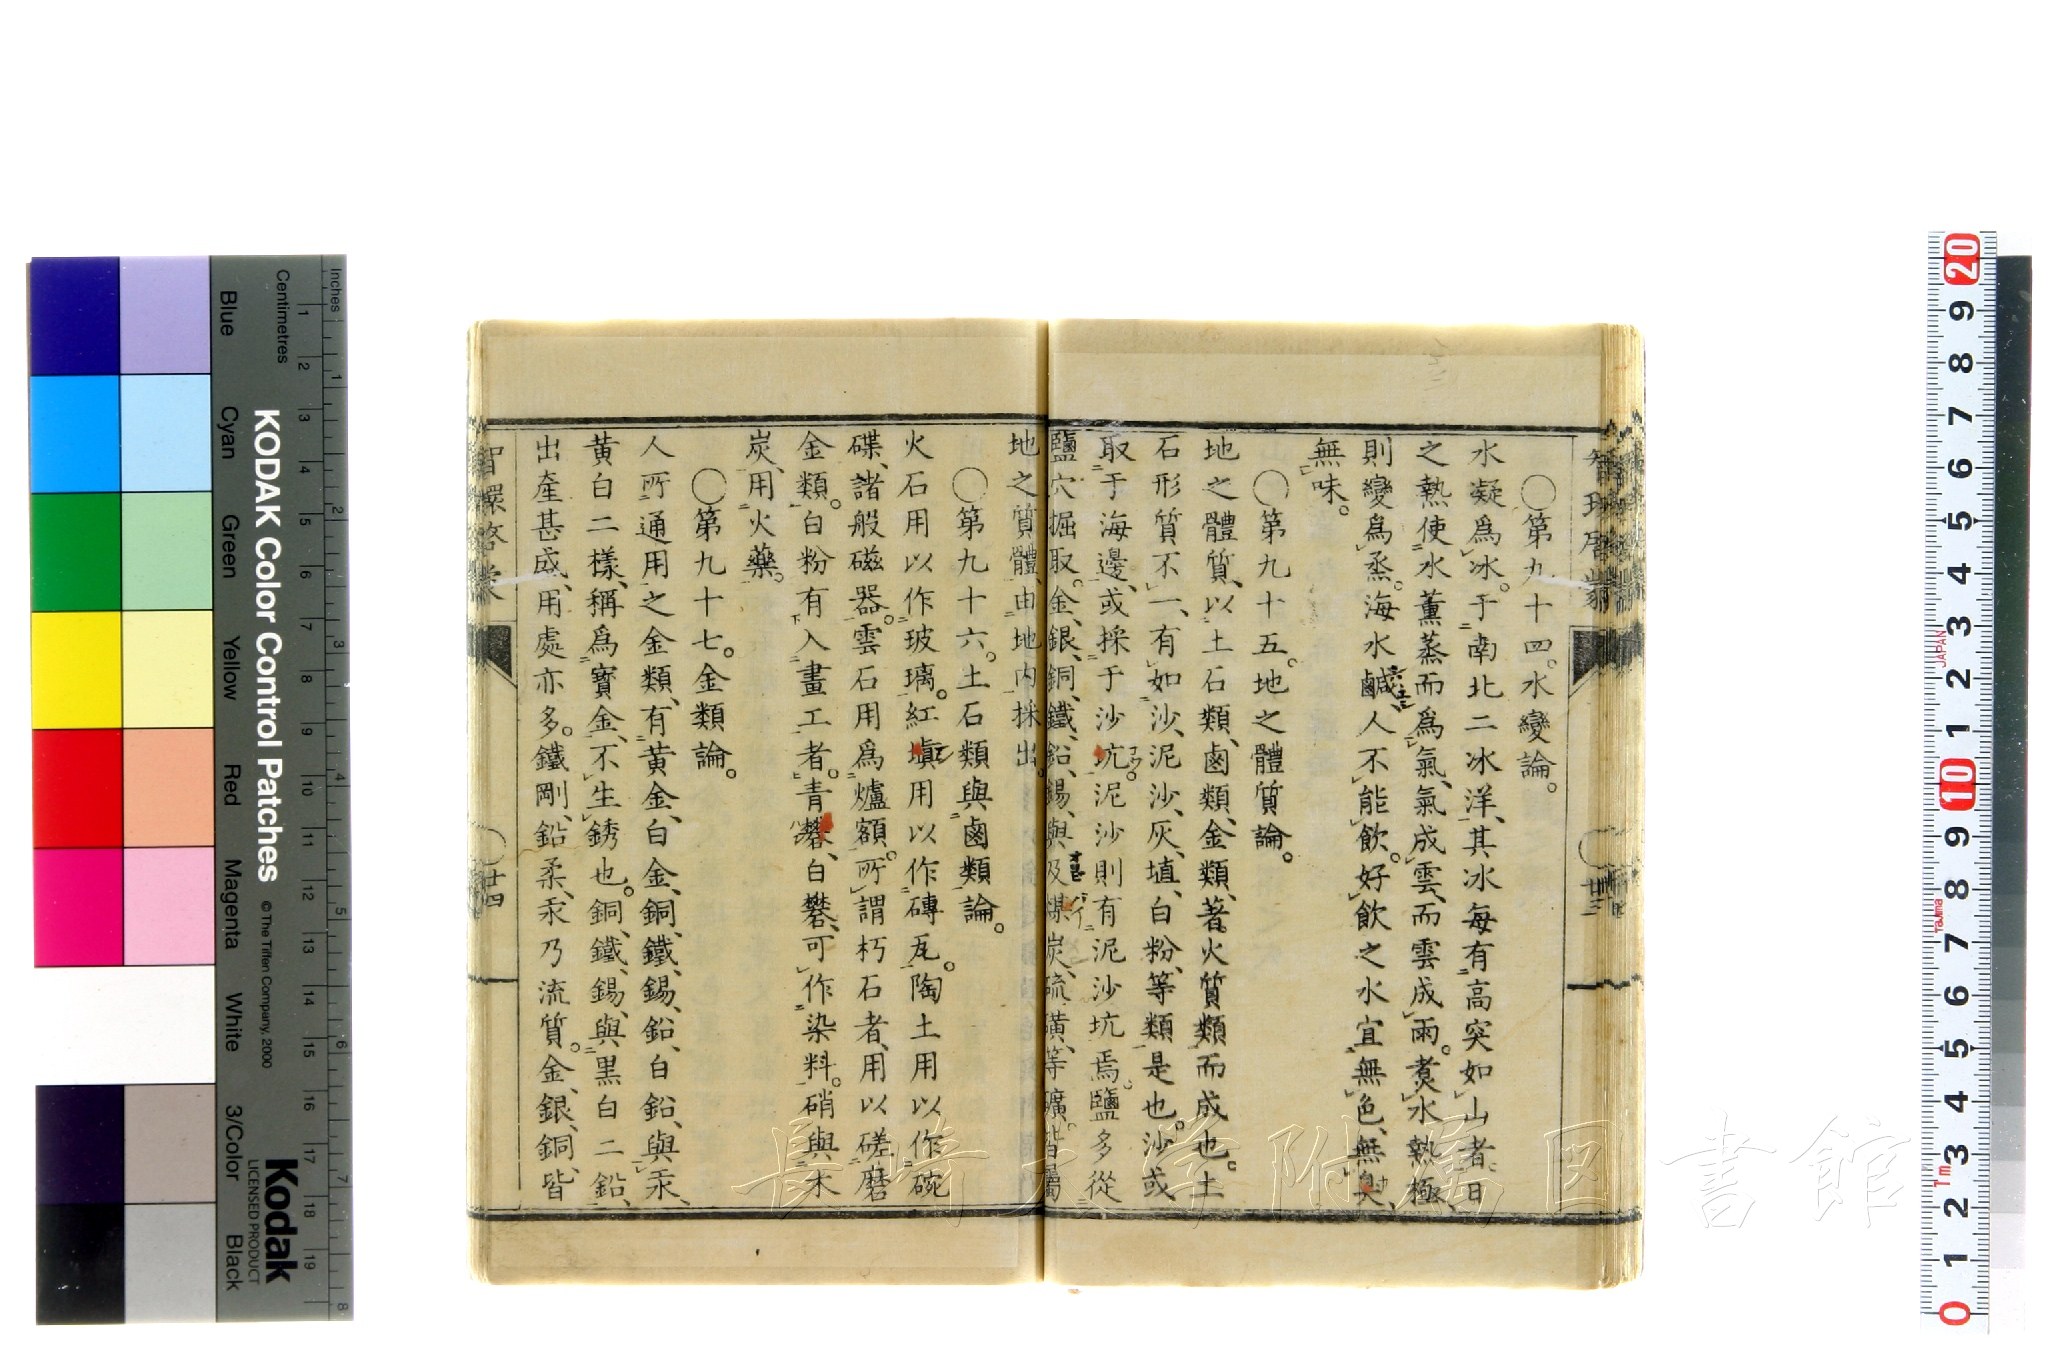 〇第九十四。水變論。
水凝爲冰。于南北二冰洋、其冰每有高突如山者。日
之熱使水薰蒸而爲氣、氣成雲、而雲成雨。煑水熱極、
則變爲烝。海水鹹、人不能飲。好飲之水宜無色、無臭、
無味。
〇第九十五。地之體質論。
地之體質、以土石類、鹵類、金類、著火質類而成也。土
石形質不一、有如沙、泥沙、灰、埴、白粉、等類是也。沙或
取于海邊、或採于沙坑。泥沙則有泥沙坑焉。鹽多從
鹽穴掘取。金、銀、銅、鐵、鉛、錫、與及煤炭、硫磺、等礦。皆屬
地之質體、由地內採出。
〇第九十六。土石類與鹵類論。
火石用以作玻璃。紅塡用以作磚瓦。陶土用以作碗
碟、諸般磁器。雲石用爲爐額。所謂朽石者、用以磋磨
金類。白粉有入畫工者。青礬、白礬、可作染料。硝與木
炭、用火藥。
〇第九十七。金類論。
人所通用之金類、有黃金、白金、銅、鐵、錫、鉛、白鉛、與汞、
黃白二樣、稱爲寶金、不生銹也。銅、鐵、錫、與黒白二鉛、
出產甚盛、用處亦多。鐵剛、鉛柔、汞乃流質。金、銀、銅、皆
智環啓蒙
廿四
Inches
Centimetres
KODAK Color Control Patches
© The Tiffen Company, 2000
Kodak
LICENSED PRODUCT
Blue
Cyan
Green
Yellow
Red
Magenta
White
3/Color
Black
長崎大学附属図書館
JAPAN
Tajima